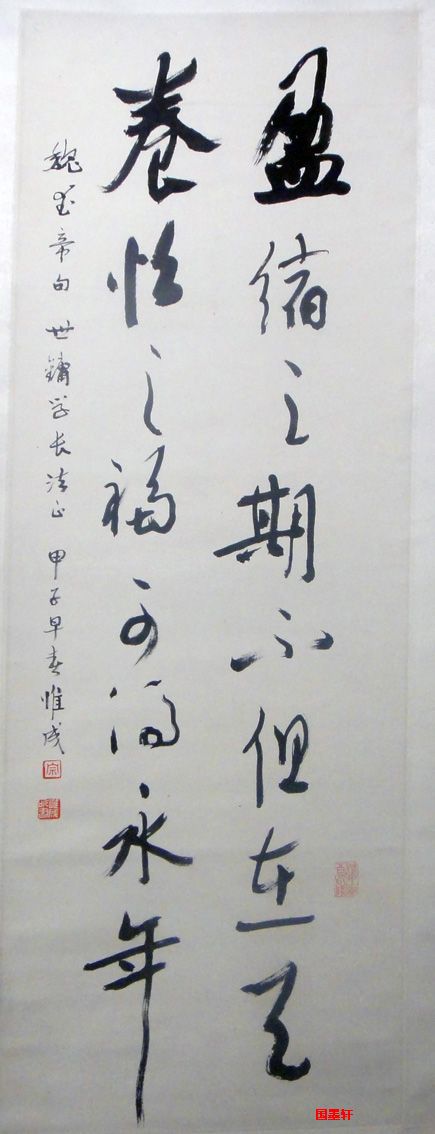 盈縮之期不但在天
養怡之福可得永年
魏武帝句 世鏞学长法正 甲子早春惟成
国墨轩